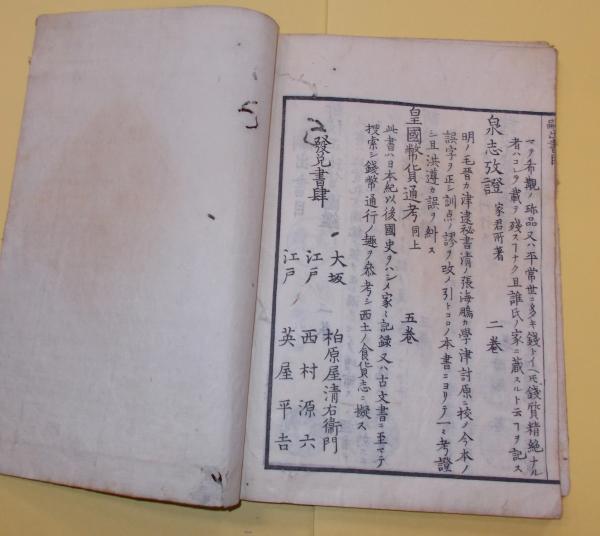 嗣出書目
マデ希觀ノ珎品又ハ平常世ニ多キ錢トイヘ𪜈錢質精絶ナル
者ハコレヲ載テ殘スヿナク且誰氏ノ家ニ藏スルト云ヿヲ記ス
泉志攷證 家君所著 二卷
明ノ毛晉カ津逮秘書清ノ張海鵬カ學津討原ニ校ノ今本ノ
誤字ヲ正シ訓点ノ謬ヲ改ノ引トコロノ本書ニヨリテ一ミ考證
シ且洪遵カ誤ヲ糾ス
皇國幣貨通考 同上 五卷
此書ハ日本紀以後國史ヲハシメ家ミ記録又ハ古文書ニ至マテ
搜索シ錢幣通行ノ趣ヲ參考シ西土ノ食貨志ニ擬ス
發兌書肆
大坂 柏原屋清右衞門
江戸 西村源六
江戸 英屋平吉